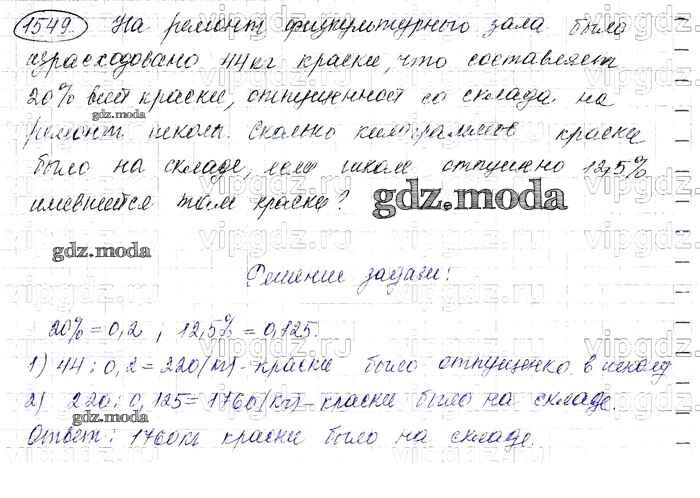 1549. На ремонт физкультурного зала было
израсходовано 44кг краски, что составляет
20% всей краски, отпущенной со склада на
gdz.moda
ремонт школы. Сколько килограммов краски
было на складе, если школе отпущено 12,5%
имевшейся там краски?
gdz.moda
gdz.moda
Решение задачи:
20% = 0,2 ; 12,5% = 0,125.
1) 44 : 0,2 = 220(кг) - краски было отпущенно в школу
2) 220 : 0,125 = 1760(кг) - краски было на складе.
gdz.moda
Ответ: 1760кг краски было на складе.